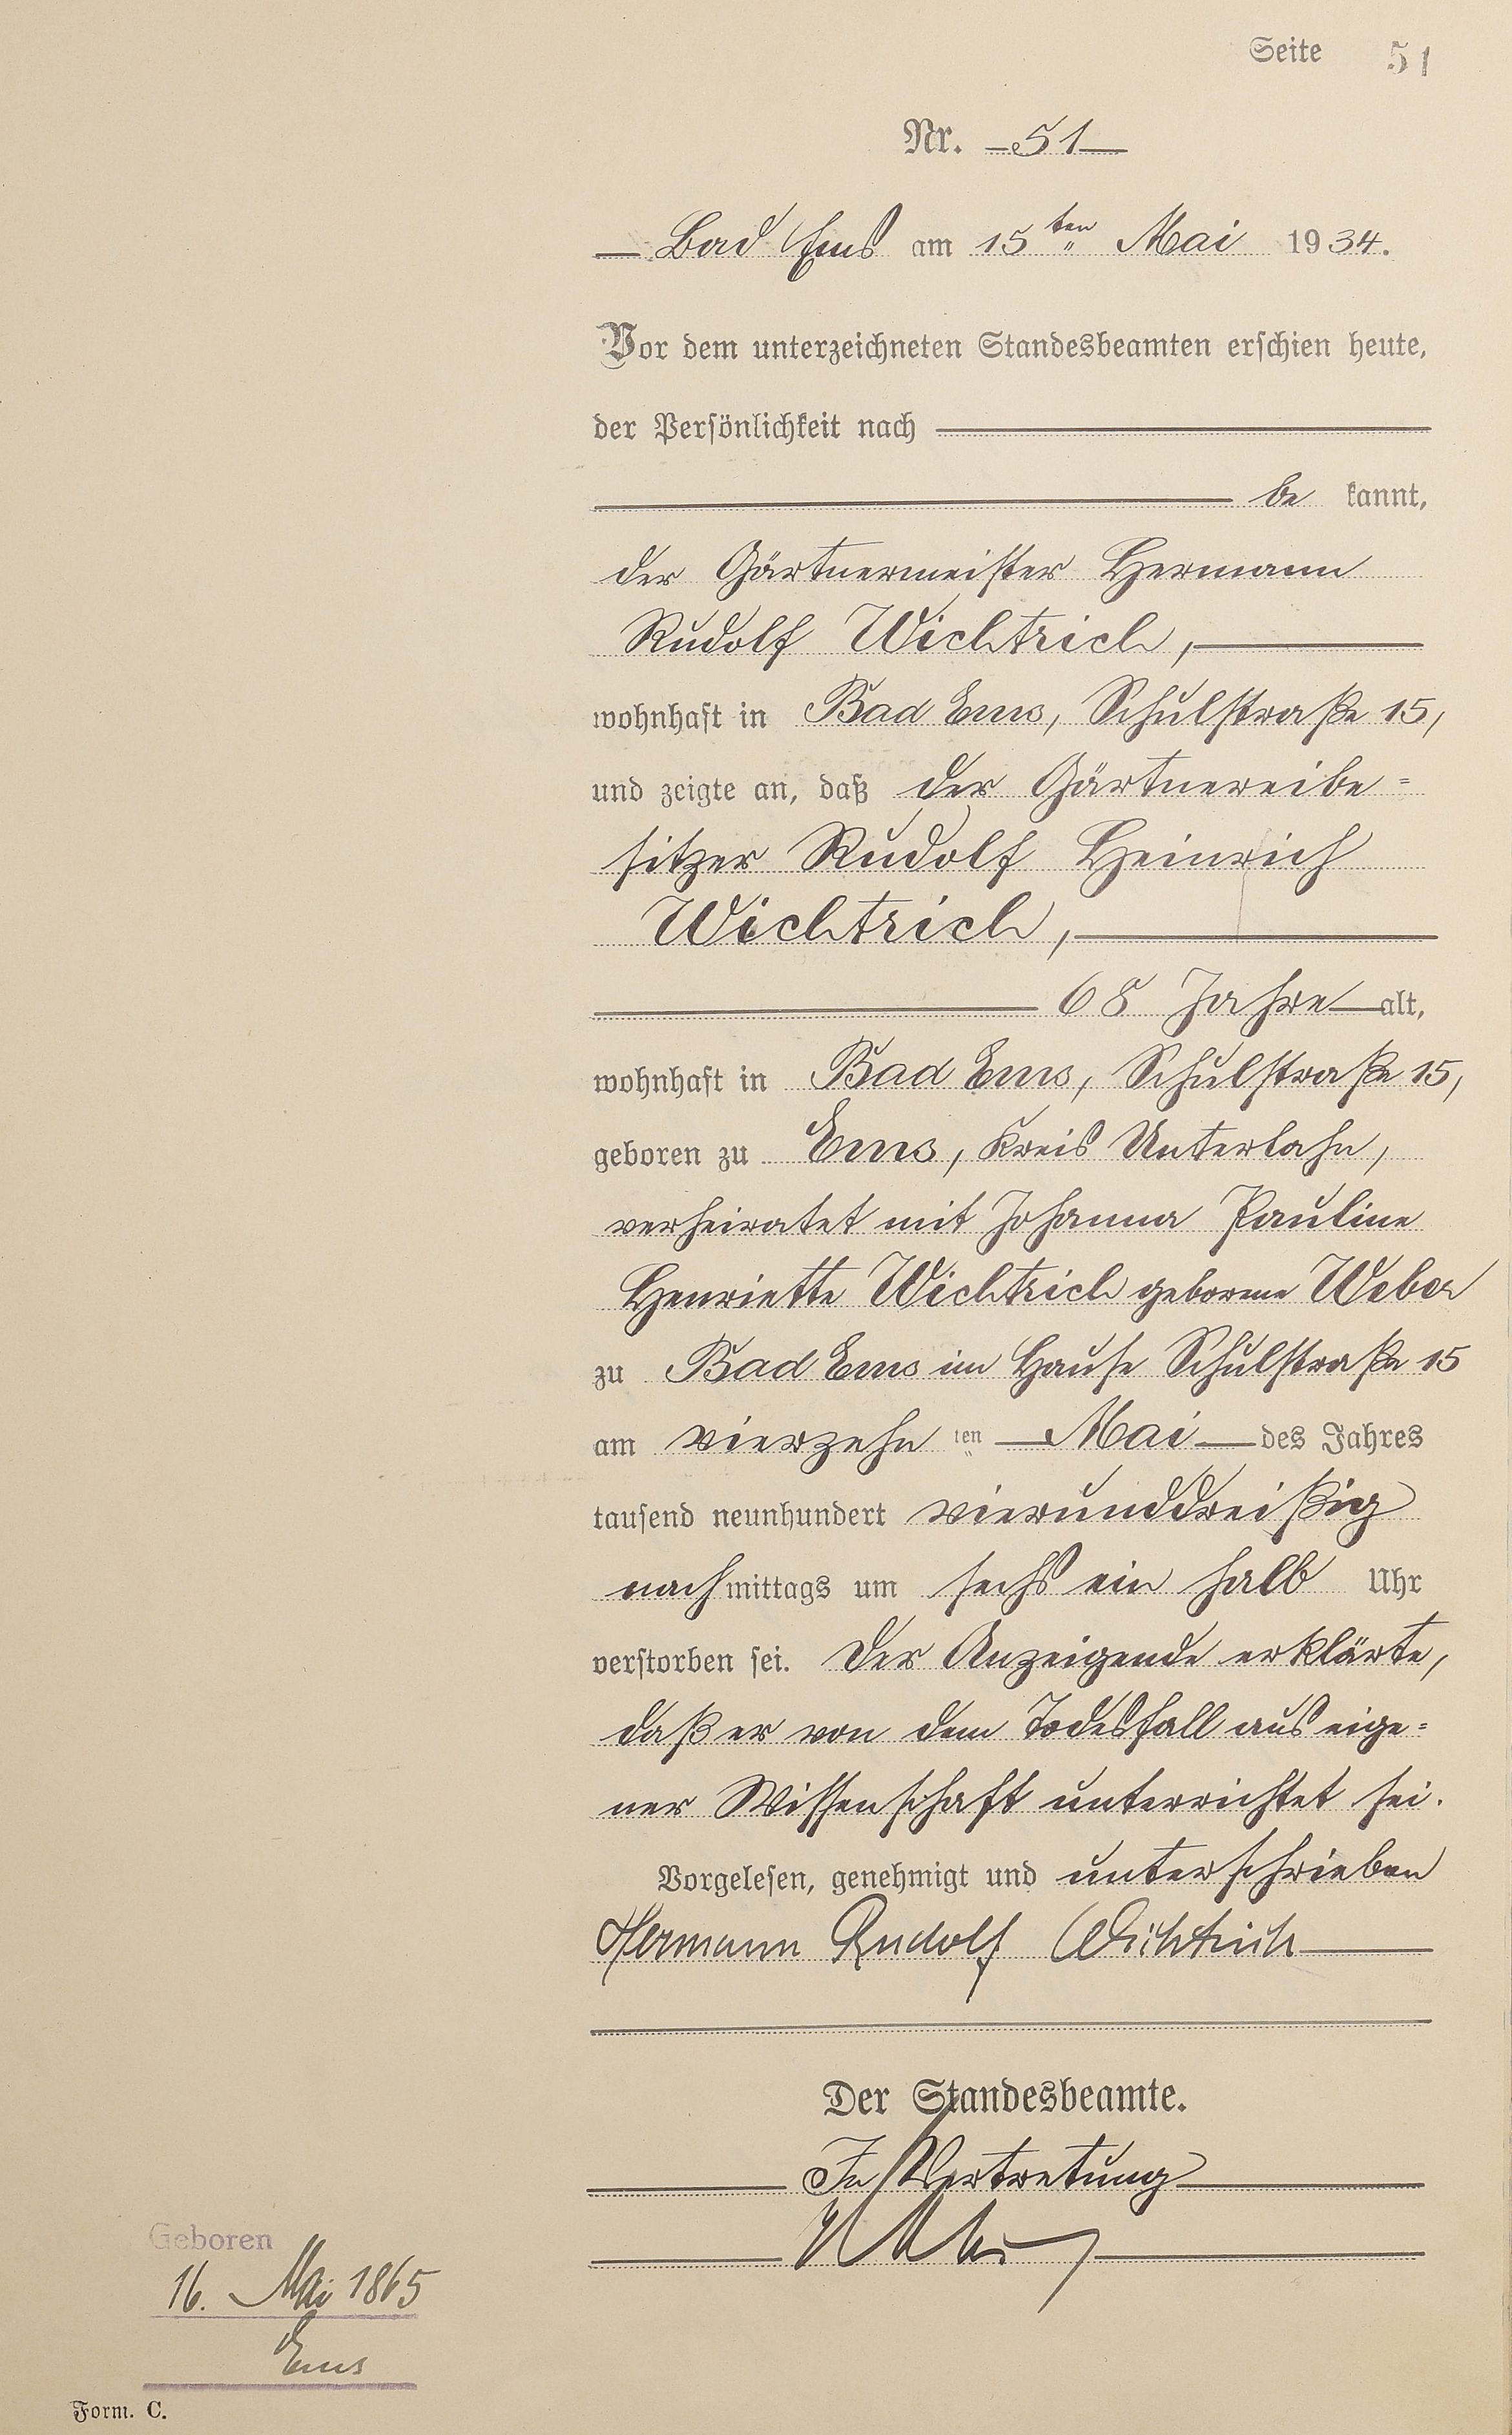 Seite 51
Nr. 51
Bad Ems am 15ten Mai 1934.
Vor dem unterzeichneten Standesbeamten erschien heute,
der Persönlichkeit nach
be kannt,
der Gärtnermeister Hermann
Rudolf Wichtrich,
wohnhaft in Bad Ems, Schulstraße 15,
und zeigte an, daß der Gärtnereibe=
sitzer Rudolf Heinrich
Wichtrich,
68 Jahre alt,
wohnhaft in Bad Ems, Schulstraße 15,
geboren zu Ems, Kreis Unterlahn,
verheiratet mit Johanna Pauline
Henriette Wichtrich geborene Weber
zu Bad Ems im Hause Schulstraße 15
am vierzehn ten Mai des Jahres
tausend neunhundert vierunddreißig
nachmittags um sechs ein halb Uhr
verstorben sei. Der Anzeigende erklärte,
daß er von dem Todesfall aus eige=
ner Wissenschaft unterrichtet sei.
Vorgelesen, genehmigt und unterschrieben
Hermann Rudolf Wichtrich
Der Standesbeamte.
In Vertretung
Geboren
16. Mai 1865
Ems
Form. C.